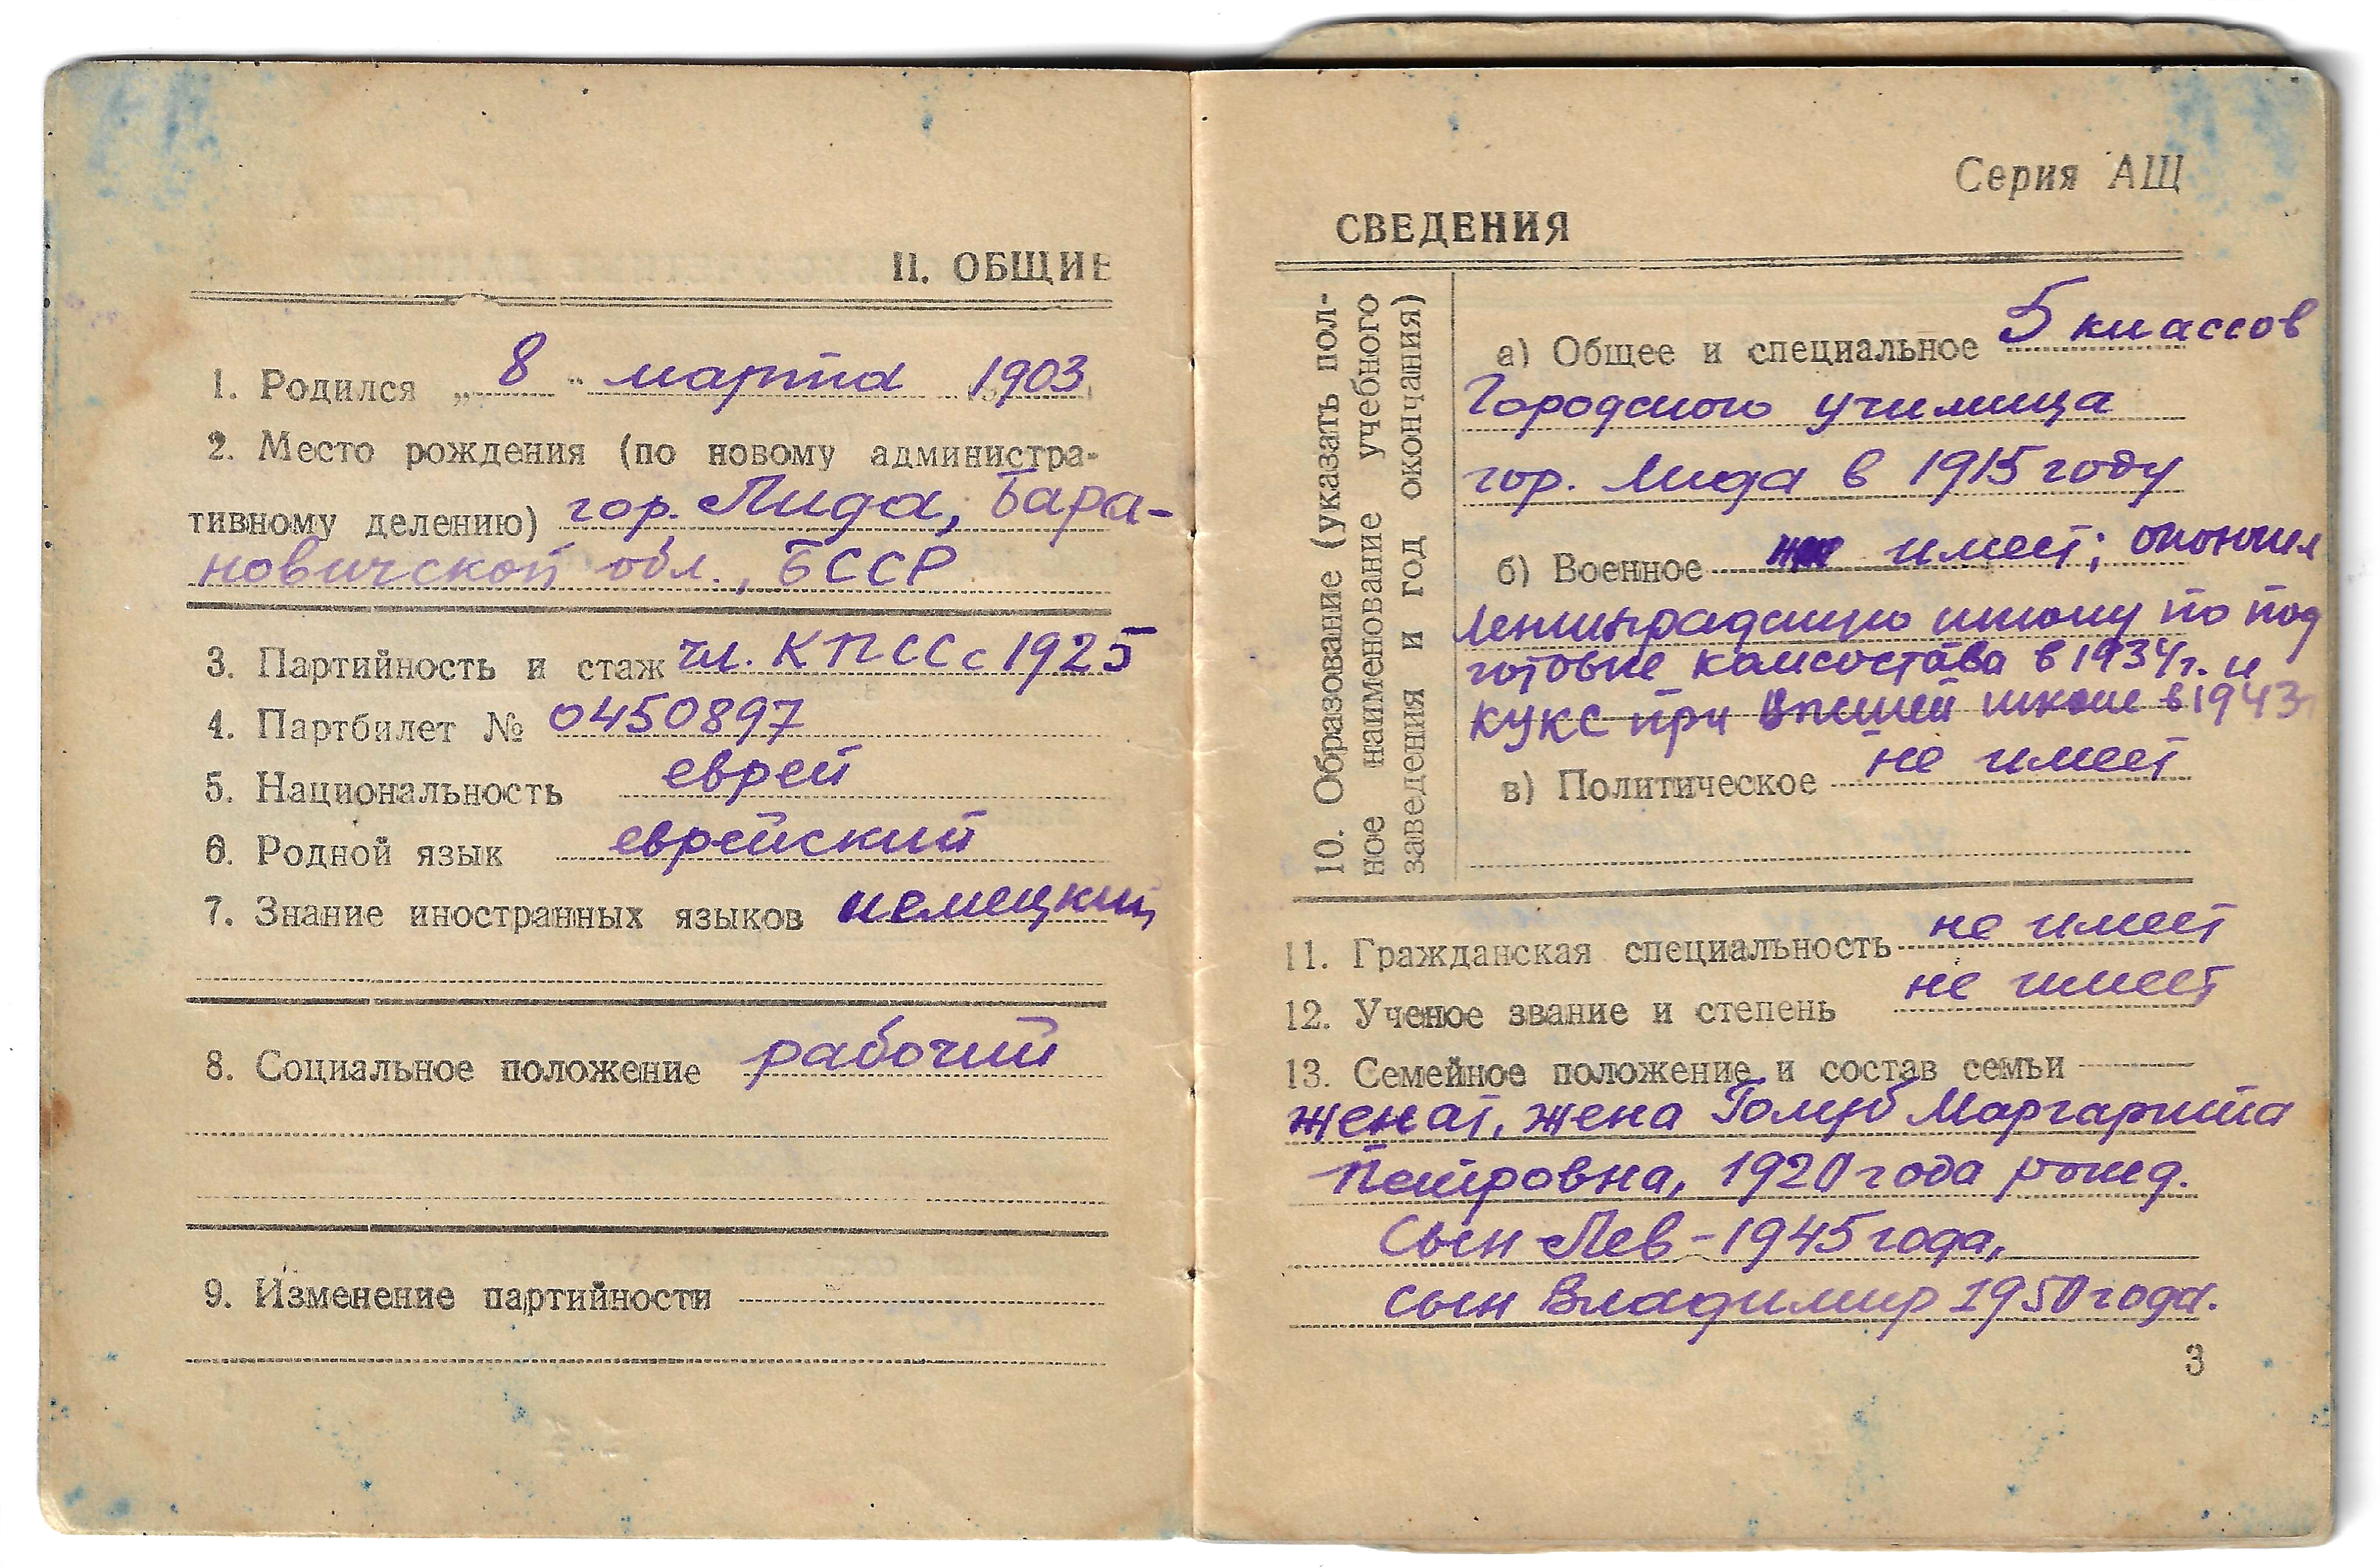 II. ОБЩИЕ
1. Родился „ 8 " марта 1903
2. Место рождения (по новому администра-
тивному делению) гор. Лида, Бара-
новичской обл., БССР
3. Партийность и стаж чл. КПСС с 1925
4. Партбилет № 0450897
5. Национальность еврей
6. Родной язык еврейский
7. Знание иностранных языков немецкий
8. Социальное положение рабочий
9. Изменение партийности
Серия АЩ
СВЕДЕНИЯ
10. Образование (указать пол-
ное наименование учебного
заведения и год окончания)
а) Общее и специальное 5 классов
Городского училища
гор. Лида в 1915 году
б) Военное имеет; окончил
Ленинградскую школу по под
готовке комсостава в 1934 г. и
КУКС при Высшей школе в 1943 г
в) Политическое не имеет
11. Гражданская специальность не имеет
12. Ученое звание и степень не имеет
13. Семейное положение и состав семьи
женат, жена Голуб Маргарита
Петровна, 1920 года рожд.
Сын Лев - 1945 года,
сын Владимир 1950 года.
3